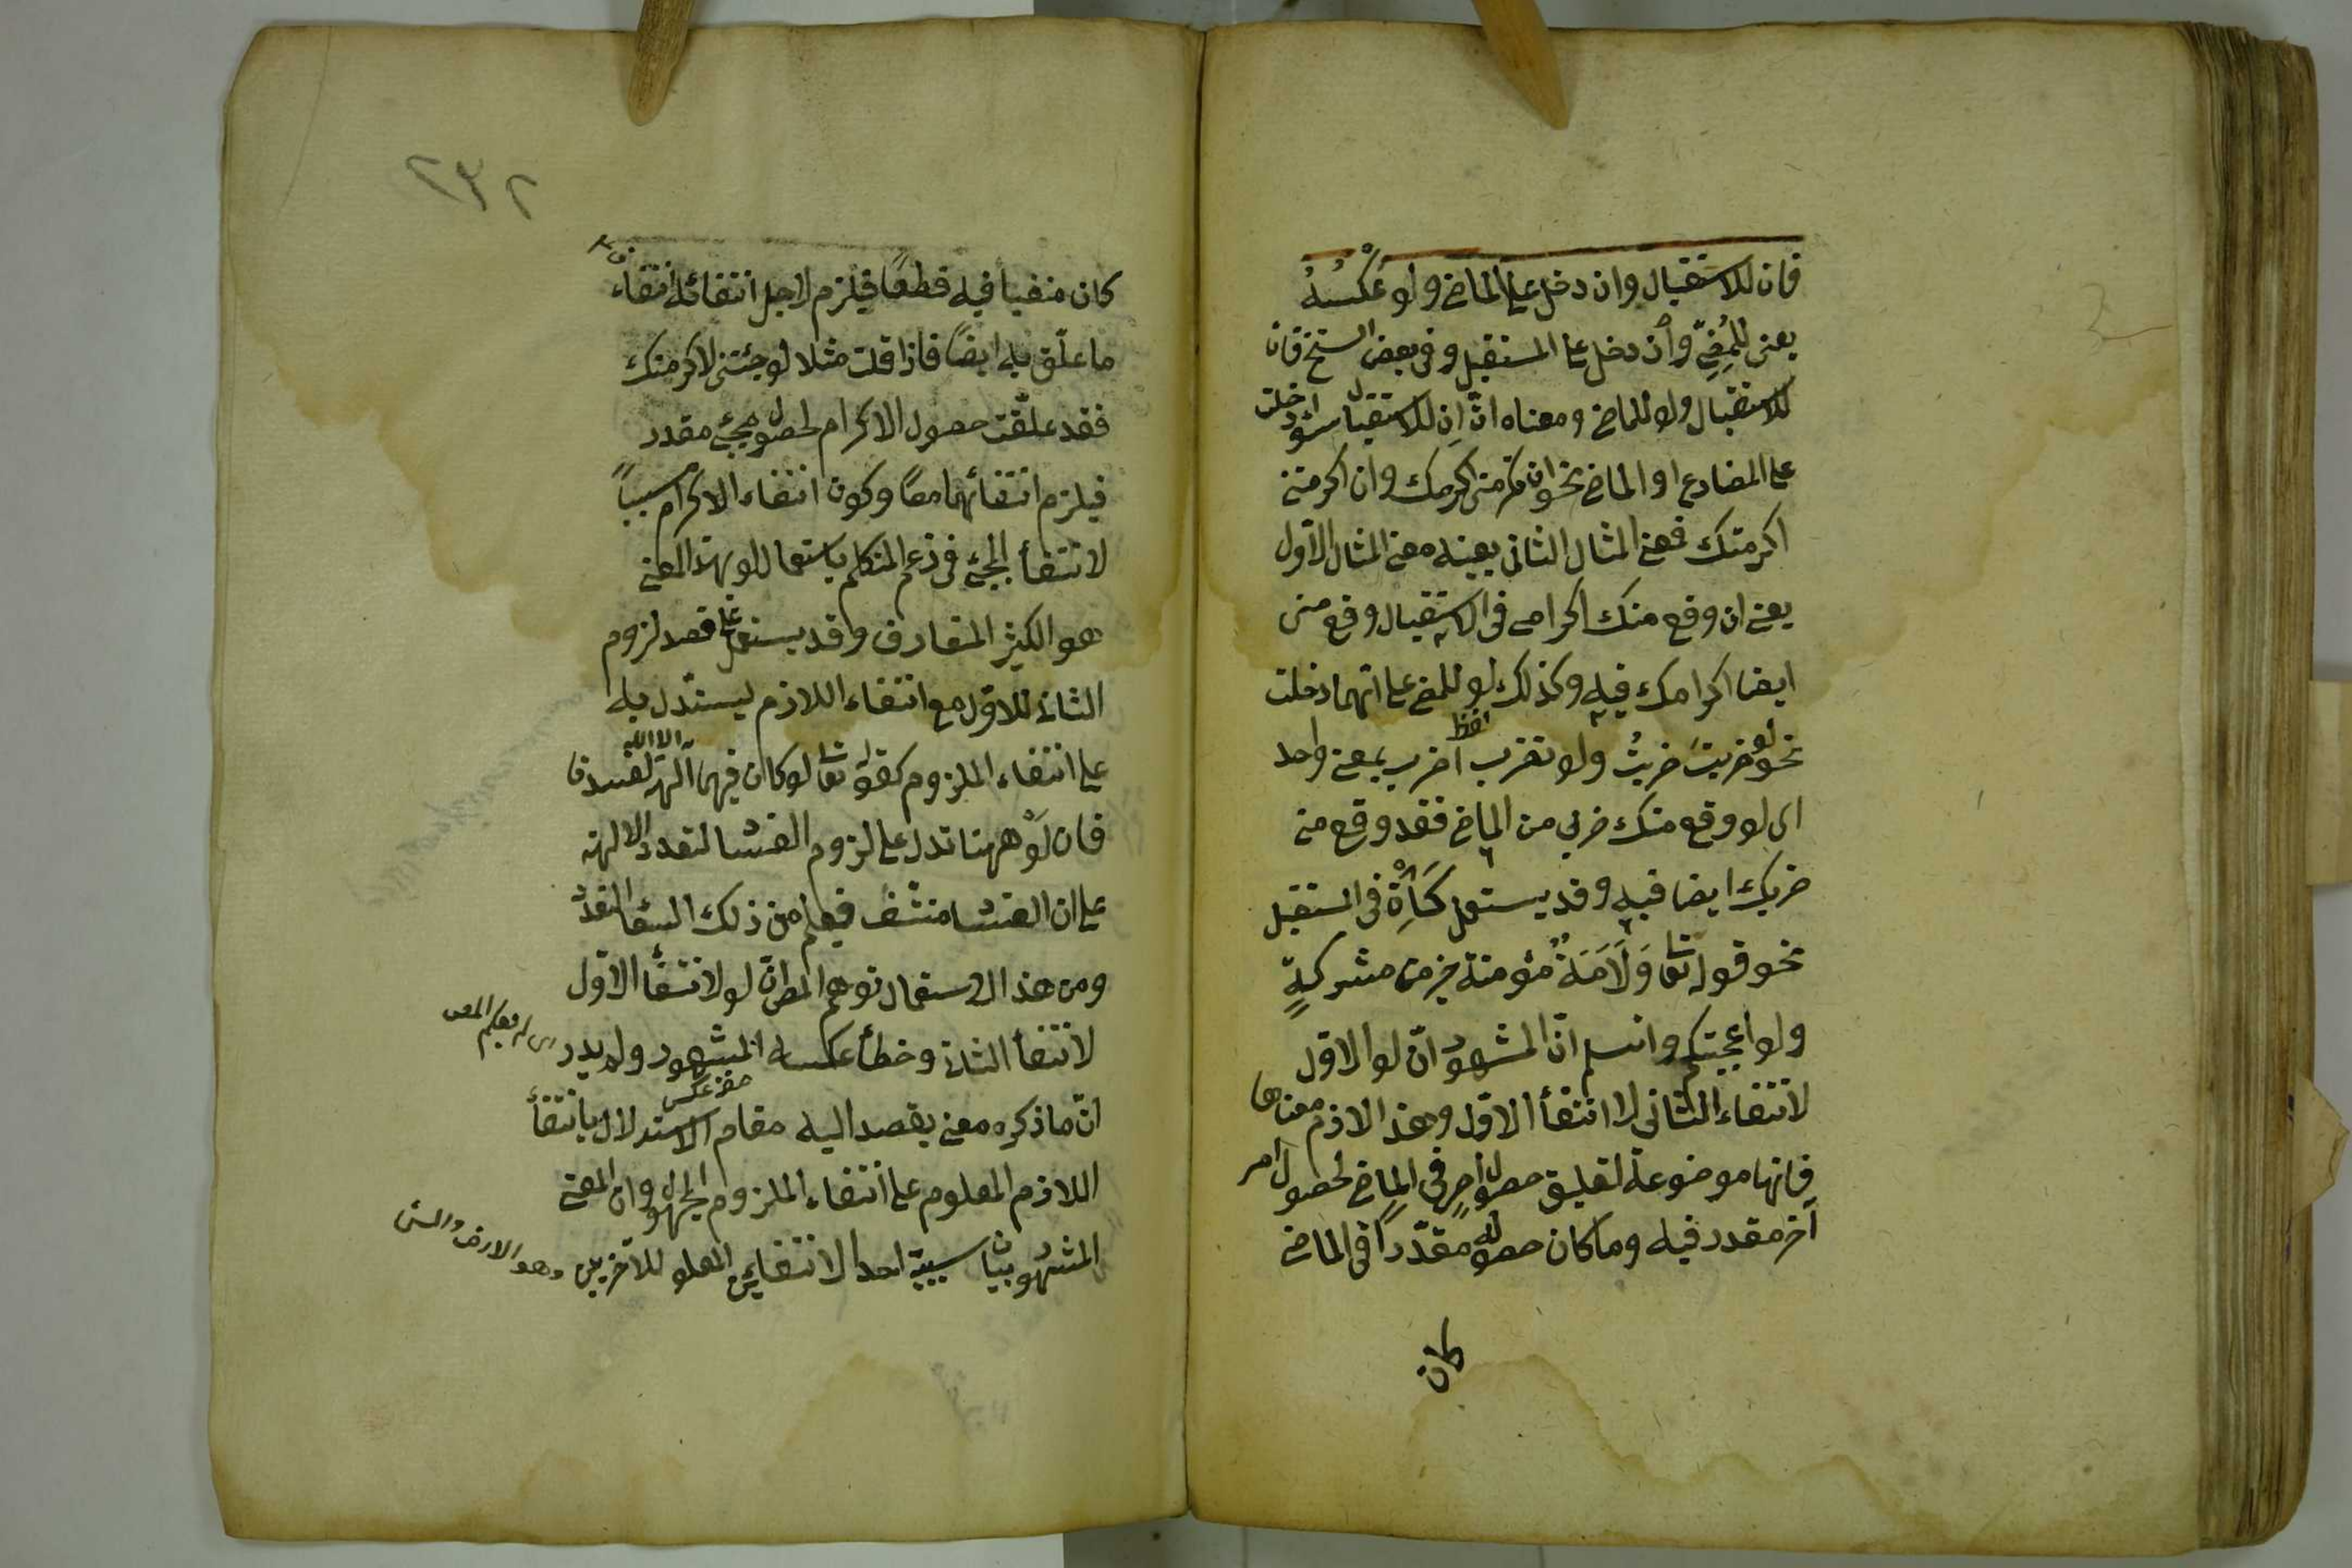 فان للاستقبال وان دخل على الماضى ولو عَكْسُهُ
يعنى للمُضِىّ وان دخل على المستقبل وفى بعض النسخ فان
للاستقبال ولو للماضى ومعناه انّ اِن للاستقبال سواء دخلت
على المضارع او الماضى نحو ان تكرمنى اكرمك وان اكرمتنى
اكرمتك فمعنى المثال الثانى بعينه معنى المثال الاول
يعنى ان وقع منك اكرامى فى الاستقبال وقع منى
ايضا اكرامك فيه وكذلك لو للمضى على ايهما دخلت
نحو لو ضربتَ ضربتُ ولو تضرب اضرب بمعنى واحد
اى لو وقع منك ضربى من الماضى فقد وقع منى
ضربك ايضا فيه وقد يستعمل كَاِنْ فى المستقبل
نحو قوله تعا وَلَاَمَةٌ مؤمنة خير من مشركةٍ
ولو اعجبتكم واشهر انّ المشهور انّ لو الاول
لانتفاء الثانى لا انتفأ الاول وهذا لازم معناها
فانها موضوعة لتعليق حصول امرٍ فى الماضى لحصول امر
آخر مقدر فيه وما كان حصوله مقدّراً فى الماضى
كان
٢٣٢
كان منفيا فيه قطعًا فيلزم لاجل انتفائه انتفاء
ما علّق به ايضًا فاذا قلت مثلا لو جئتنى لاكرمتك
فقد علّقت حصول الاكرام لحصول مجئ مقدر
فيلزم انتفائهما معًا وكون انتفاء الاكرام سبباً
لانتفأ المجئ فى زعم المتكلم باستعمال لو بهذا المعنى
هو الكثير المتعارف وقد يستعمل على قصد لزوم
الثانى للاول مع انتفاء اللازم ليستدل به
على انتفاء الملزوم كقوله تعا لو كان فيهما آلهة الا الله لفسدتا
فان لَوْ ههنا تدل على لزوم الفساد لتعدد الالهة
على ان الفساد منتف فيعلم من ذلك انتفأ التعدد
ومن هذا الاستعمال توهم المص انّ لو لانتفأ الاول
لانتفأ الثانى وخطأ عكسه المشهور ولم يدر
انّ ما ذكره معنى يقصد اليه مقام الاستدلال بانتفأ
اللازم المعلوم على انتفاء الملزوم المجهول وان المعنى
المشهور بيان سببيّة احد الانتفائين المعلو للآخر بين وهو الارض والسـ